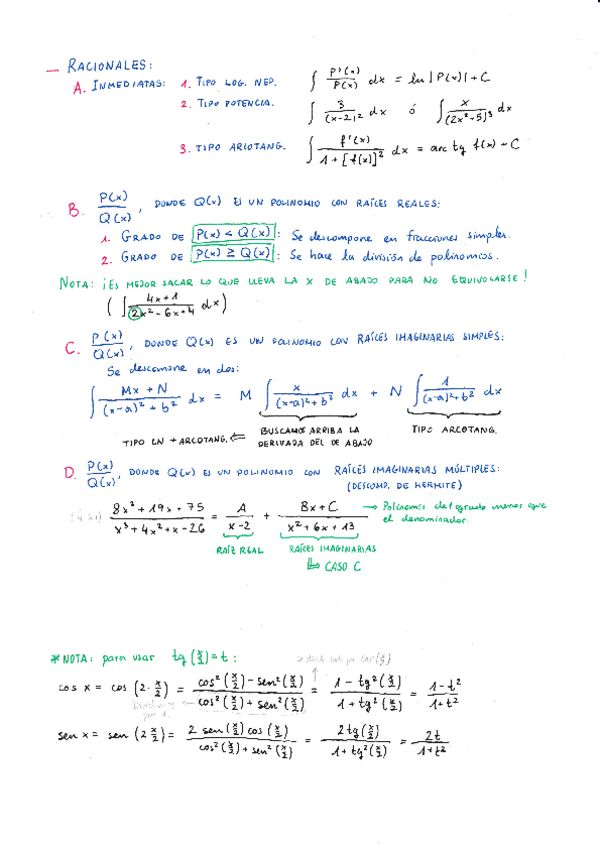 — RACIONALES:
A. INMEDIATAS: 1. TIPO LOG. NEP. ∫ P'(x)/P(x) dx = ln |P(x)| + C
2. TIPO POTENCIA. ∫ 3/(x-2)² dx ó ∫ x/(2x²-5)³ dx
3. TIPO ARCOTANG. ∫ f'(x)/(1+[f(x)]²) dx = arc tg f(x) + C
B. P(x)/Q(x), DONDE Q(x) ES UN POLINOMIO CON RAÍCES REALES:
1. GRADO DE P(x) < Q(x): Se descompone en fracciones simples.
2. GRADO DE P(x) ≥ Q(x): Se hace la división de polinomios.
NOTA: ¡ES MEJOR SACAR LO QUE LLEVA LA X DE ABAJO PARA NO EQUIVOCARSE!
(∫ (4x+1)/(2x²-6x+4) dx)
C. P(x)/Q(x), DONDE Q(x) ES UN POLINOMIO CON RAÍCES IMAGINARIAS SIMPLES:
Se descompone en dos:
∫ (Mx+N)/((x-a)²+b²) dx = M ∫ x/((x-a)²+b²) dx + N ∫ 1/((x-a)²+b²) dx
TIPO LN + ARCOTANG. ⇐ BUSCAMOS ARRIBA LA DERIVADA DEL DE ABAJO TIPO ARCOTANG.
D. P(x)/Q(x), DONDE Q(x) ES UN POLINOMIO CON RAÍCES IMAGINARIAS MÚLTIPLES:
(DESCOMP. DE HERMITE)
(8x²+19x+75)/(x³+4x²+x-26) = A/(x-2) + (Bx+C)/(x²+6x+13) → Polinomio del grado menos que el denominador.
RAÍZ REAL RAÍCES IMAGINARIAS
↳ CASO C
* NOTA: para usar tg(x/2)=t: se divide todo por cos²(x/2)
cos x = cos (2·x/2) = (cos²(x/2) - sen²(x/2))/(cos²(x/2) + sen²(x/2)) = (1 - tg²(x/2))/(1 + tg²(x/2)) = (1-t²)/(1+t²)
sen x = sen (2 x/2) = (2 sen(x/2) cos(x/2))/(cos²(x/2) + sen²(x/2)) = (2tg(x/2))/(1+tg²(x/2)) = 2t/(1+t²)